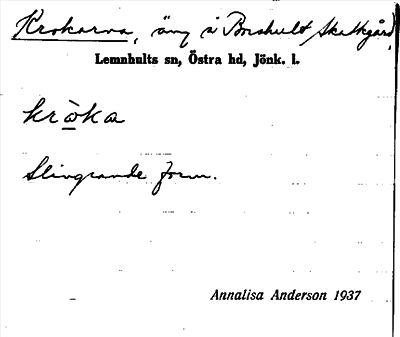 Krokarna, äng å Boshult Skattegård,
Lemnhults sn, Östra hd, Jönk. l.
kròka
Slingrande form.
Annalisa Anderson 1937